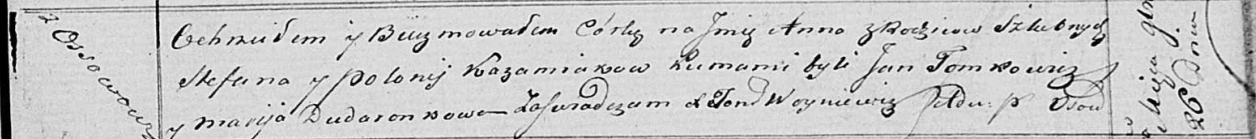 z Ossowowa
Ochrzciłem y Bierzmowałem Córkę na Jmię Anna z Rodziców Szlubnych
Stefana y Polonij Kazamiakow Kumami byli Jan Tomkowicz
y Maryja Dudaronkowa Zaświadczam X Woyniewicz
Miesiąca
26 Dnia